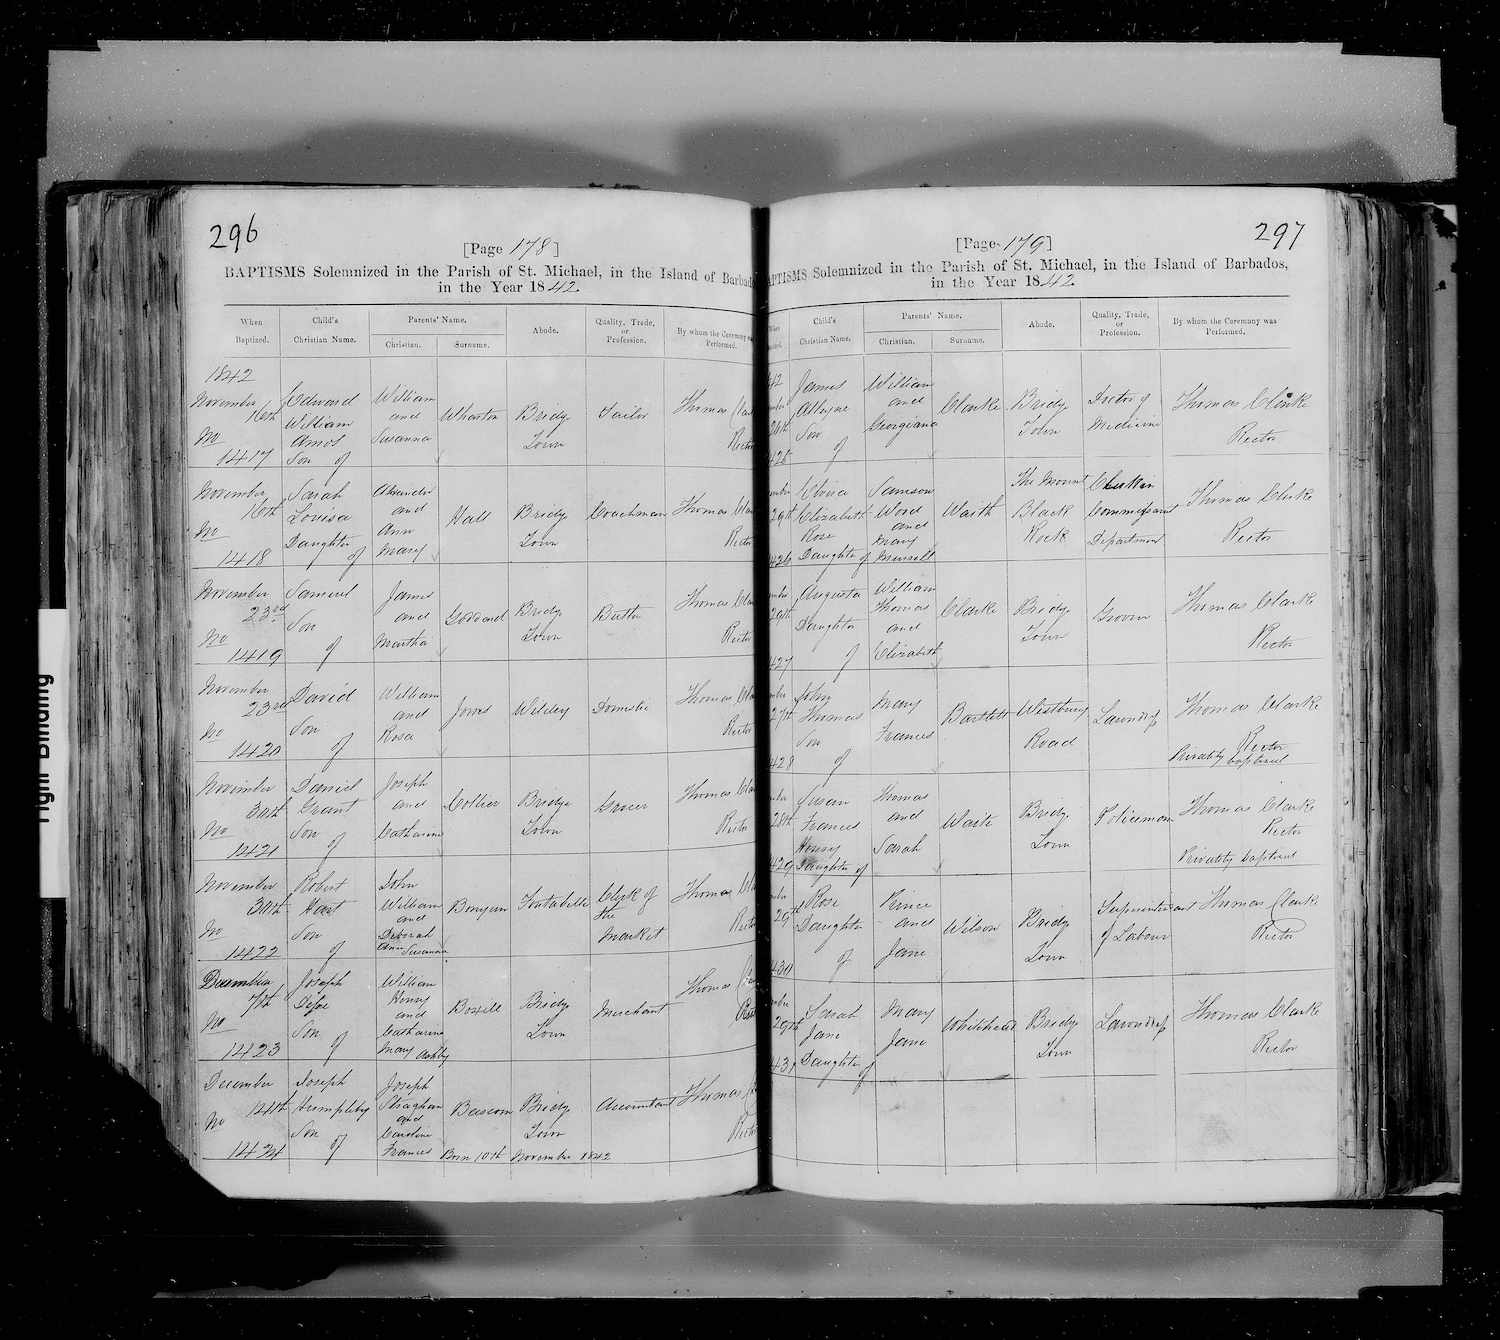 296
[Page 178]
BAPTISMS Solemnized in the Parish of St. Michael, in the Island of Barbad
in the Year 1842.
When Baptized.
Child's Christian Name.
Parents' Name.
Christian.
Surname.
Abode.
Quality, Trade, or Profession.
By whom the Ceremony w
Performed.
1842
November 16th No 1417
Edward William Amos Son of
William and Susanna
Wharton
Bridge Town
Tailor
Thomas Cla
Recto
November 16th No 1418
Sarah Louisa Daughter of
Alexander and Ann Mary
Hall
Bridge Town
Coachman
Thomas Cla
Recto
November 23rd No 1419
Samuel Son of
James and Martha
Goddard
Bridge Town
Butler
Thomas Cla
Recto
November 23rd No 1420
David Son of
William and Rosa
Jones
Wildey
Domestic
Thomas Cla
Recto
November 30th No 1421
Daniel Grant Son of
Joseph and Catharine
Collier
Bridge Town
Grocer
Thomas Cla
Recto
November 30th No 1422
Robert Hart Son of
John William and Deborah Ann Susanna
Bonyun
Fontabelle
Clerk of the Market
Thomas Cla
Recto
December 7th No 1423
Joseph Son of
William Henry and Catharine Mary Ashby
Boxill
Bridge Town
Merchant
Thomas Cla
Rect
December 14th No 1424
Joseph Son of
Joseph Straghan and Caroline Frances
Bascom
Bridge Town
Accountant
Thomas
Recto
Born 10th November 1842
297
[Page 179]
APTISMS Solemnized in the Parish of St. Michael, in the Island of Barbados,
in the Year 1842.
Child's Christian Name.
Parents' Name.
Christian.
Surname.
Abode.
Quality, Trade, or Profession.
By whom the Ceremony was Performed.
42
26th
425
James Alleyne Son of
William and Georgiana
Clarke
Bridge Town
Doctor of Medicine
Thomas Clarke
Rector
29th
426
Elvira Elizabeth Rose Daughter of
Samson Wood and Mary Mensell
Waith
The Mount Black Rock
Clerk in Commissariat Department
Thomas Clarke
Rector
29th
427
Augusta Daughter of
William Thomas and Elizabeth
Clarke
Bridge Town
Groom
Thomas Clarke
Rector
27th
428
John Thomas Son of
Mary Frances
Bartlett
Westbury Road
Laundress
Thomas Clarke
Rector
Privately baptised
28th
429
Susan Frances Henry Daughter of
Thomas and Sarah
Waite
Bridge Town
Policeman
Thomas Clarke
Rector
Privately baptised
29th
430
Rose Daughter of
Prince and Jane
Wilson
Bridge Town
Superintendent of Labour
Thomas Clarke
Rector
29th
431
Sarah Jane Daughter of
Mary Jane
Whitehead
Bridge Town
Laundress
Thomas Clarke
Rector
Tight Binding